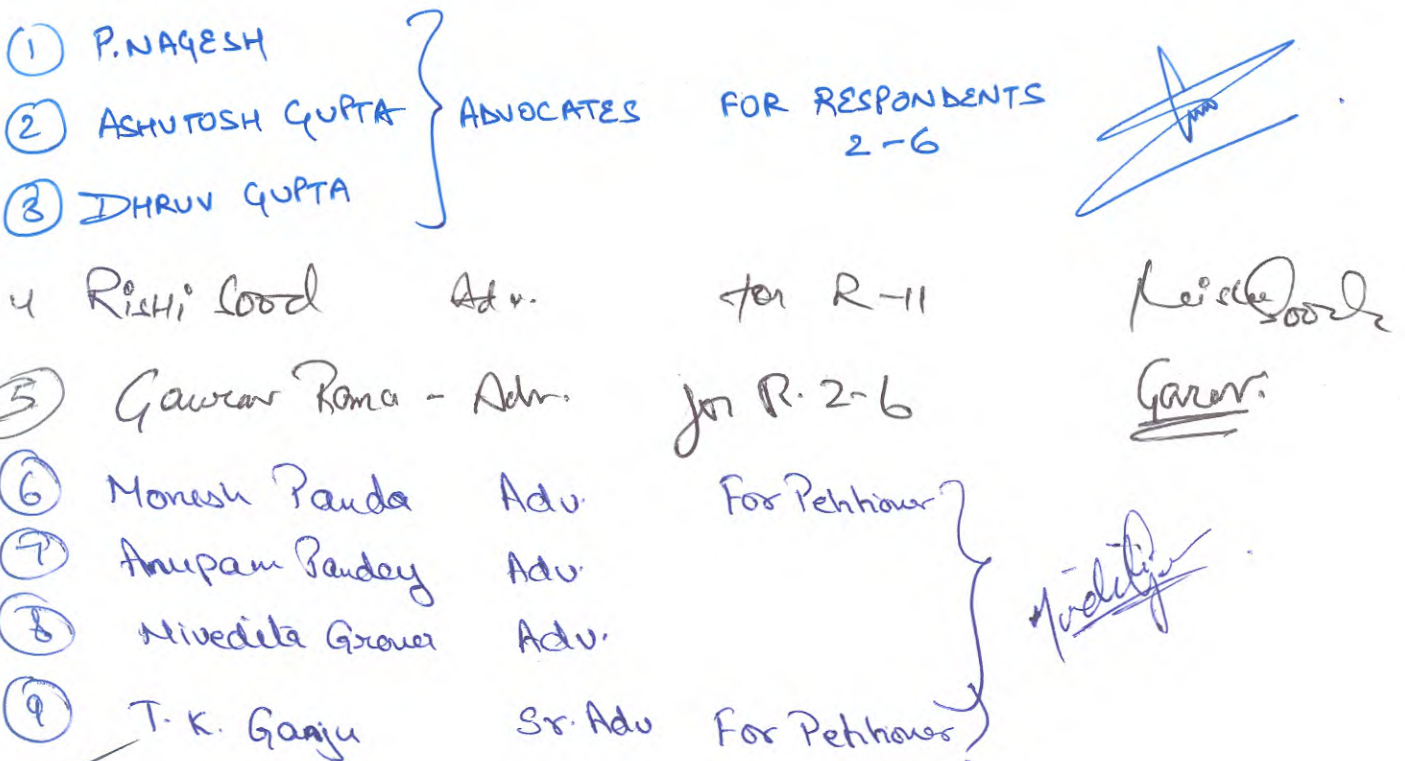 1 P. NAGESH
2 ASHUTOSH GUPTA ADVOCATES FOR RESPONDENTS
2-6
3 DHRUV GUPTA
4 RISHI Sood Adv. for R-11
5 Gaurav Rana - Adv. for R. 2-6 Gaurav.
6 Monesh Panda Adv. For Petitioner
7 Anupam Pandey Adv.
8 Nivedita Grover Adv.
9 T. K. Ganju Sr. Adv For Petitioner